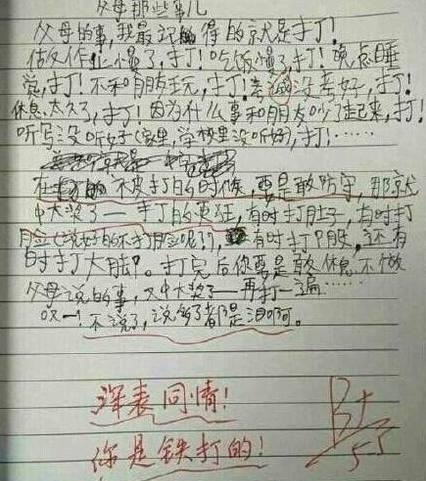 父母那些事儿
父母的事,我最记得的就是打!
做作业慢了,打!吃饭慢了,打!晚点睡
觉,打!不和朋友玩,打!考试没考好,打!
休息太久了,打!因为什么事和朋友吵了起来,打!
听写没听好(家里,学校里没听好),打!……
在 被打的时候,要是敢防守,那就
中大奖了——打的更狂,有时打肚子,有时打
脸(说好的不打脸呢?!),有时打P股,还有
时打大腿。打完后你要是敢休息不做
父母说的事,又中大奖了——再打一遍……
哎—!不说了,说多了都是泪啊。
深表同情!
你是铁打的!
B+
5.3